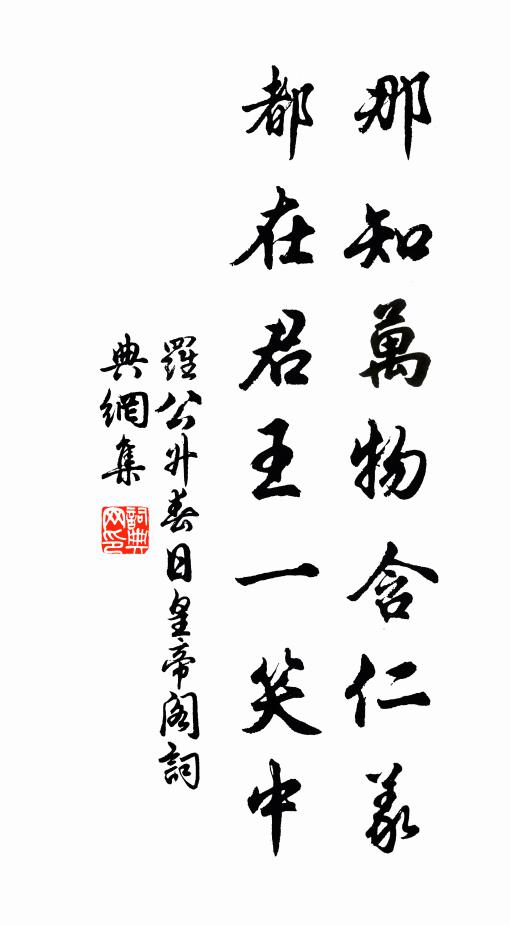 那知萬物含仁義
都在君王一笑中
羅公升春日皇帝閣詞
典網集
詞典網印